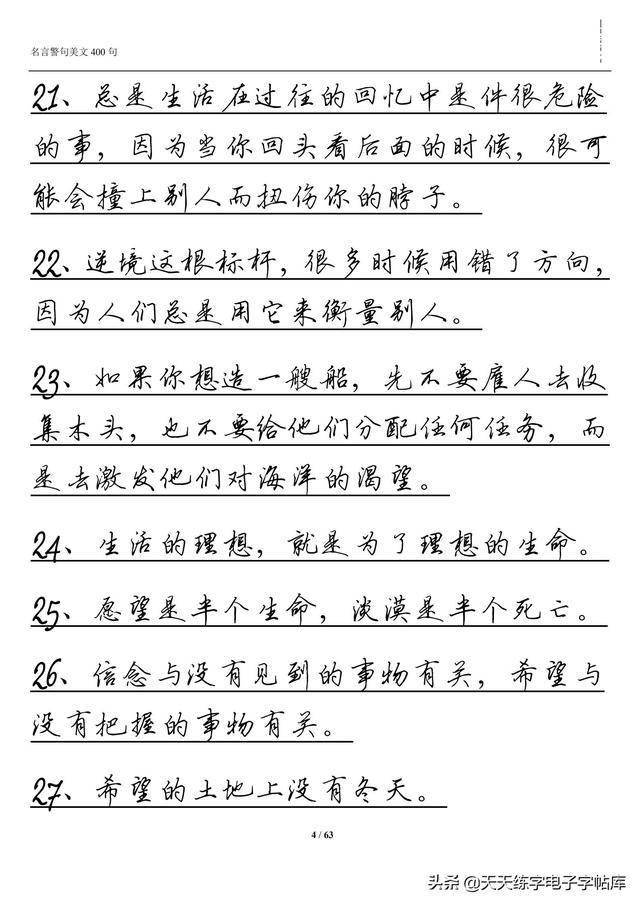 名言警句美文 400 句
21、总是生活在过往的回忆中是件很危险
的事，因为当你回头看后面的时候，很可
能会撞上别人而扭伤你的脖子。
22、逆境这根标杆，很多时候用错了方向，
因为人们总是用它来衡量别人。
23、如果你想造一艘船，先不要雇人去收
集木头，也不要给他们分配任何任务，而
是去激发他们对海洋的渴望。
24、生活的理想，就是为了理想的生命。
25、愿望是半个生命，淡漠是半个死亡。
26、信念与没有见到的事物有关，希望与
没有把握的事物有关。
27、希望的土地上没有冬天。
4 / 63
头条 @天天练字电子字帖库